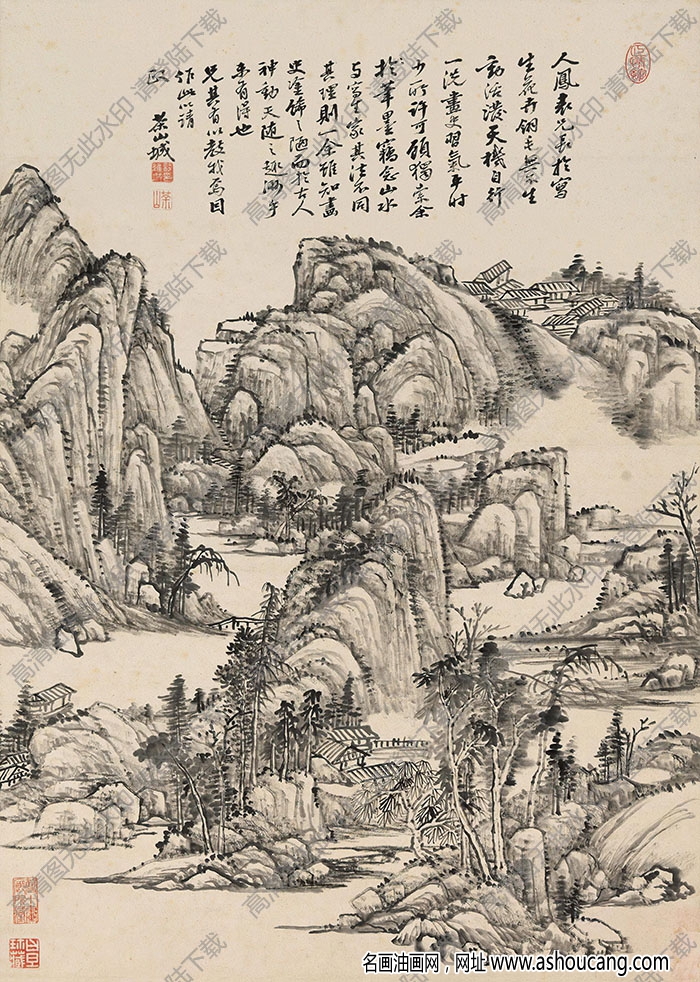 人鳳表兄長於寫
生花卉翎毛無不生
動活潑天機自行
一洗畫史習氣平時
少所許可顧獨索余
於筆墨竊念山水
与寫生家其法不同
其理則一余雖知畫
史塗飾之陋而於古人
神動天隨之趣渺乎
未有得也
兄其有以教我焉因
作此以請
政 茶山城
茶山
高清图无此水印 请登陆下载
名画油画网，网址 www.ashoucang.com